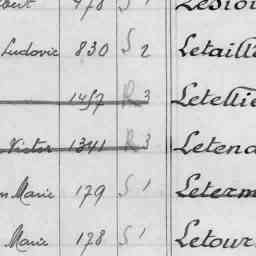 478 S 1
Ludovic 830 S 2 Letaill
1457 R 3 Letellie
Victor 1341 R 3 Letend
Marie 179 S 1 Leterm
Marie 178 S 1 Letour